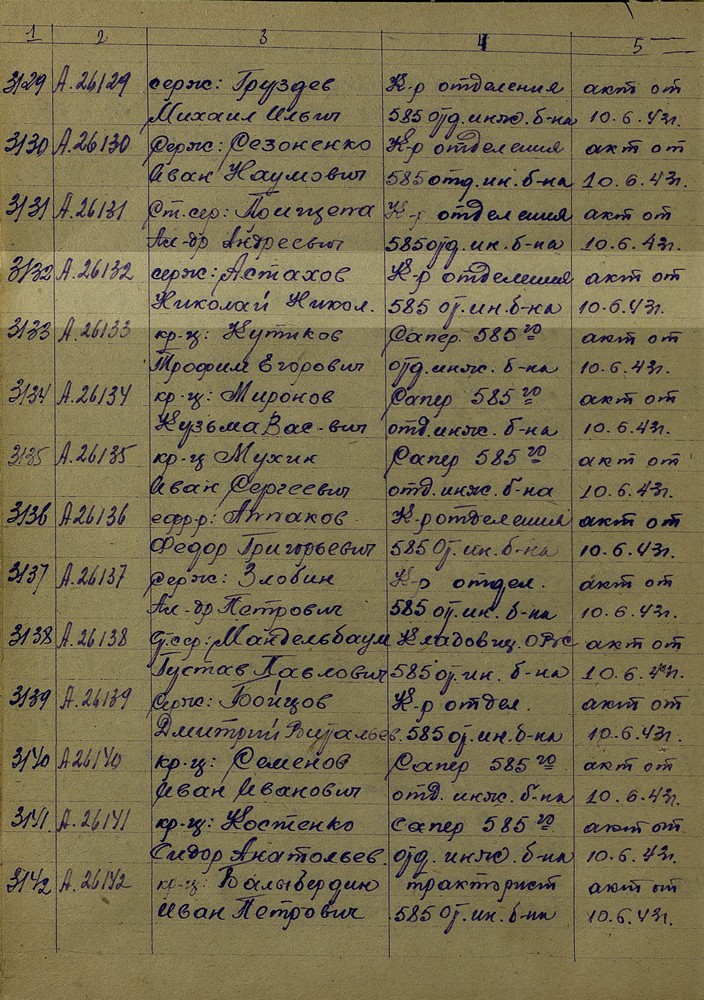 1 2 3 4 5
3129 А.26129 серж: Груздев К-р отделения акт от
Михаил Ильич 585 отд. инж. б-на 10.6.43г.
3130 А.26130 Серж: Сезоненко К-р отделения акт от
Иван Наумович 585 отд. ин. б-на 10.6.43г.
3131 А.26131 Ст. сер: К-р отделения акт от
Ал-др Андреевич 585 отд. ин. б-на 10.6.43г.
3132 А.26132 серж: Астахов К-р отделения акт от
Николай Никол. 585 от. ин. б-на 10.6.43г.
3133 А.26133 кр-ц: Кутиков Сапер 585го акт от
Трофим Егорович отд. инж. б-на 10.6.43г.
3134 А.26134 кр-ц: Миронов Сапер 585го акт от
Кузьма Вас-вич отд. инж. б-на 10.6.43г.
3135 А.26135 кр-ц Мухин Сапер 585го акт от
Иван Сергеевич отд. инж. б-на 10.6.43г.
3136 А26136 ефр-р: Аппаков К-р отделения акт от
Федор Григорьевич 585 От. ин. б-на 10.6.43г.
3137 А.26137 серж: Злобин К-р отдел. акт от
Ал-др Петрович 585 от. ин. б-на 10.6.43г.
3138 А.26138 Мандельбаум Кладовщ. акт от
Густав Павлович 585 от. ин. б-на 10.6.43г.
3139 А.26139 Серж: Бойцов К-р отдел. акт от
Дмитрий Витальев. 585 от. ин. б-на 10.6.43г.
3140 А26140 кр-ц: Семенов Сапер 585го акт от
Иван Иванович отд. инж. б-на 10.6.43г.
3141. А.26141 кр-ц: Костенко сапер 585го акт от
Сидор Анатольев. отд. инж. б-на 10.6.43г.
3142 А.26142 кр-ц: Балыбердин тракторист акт от
Иван Петрович 585 От. ин. б-на 10.6.43г.